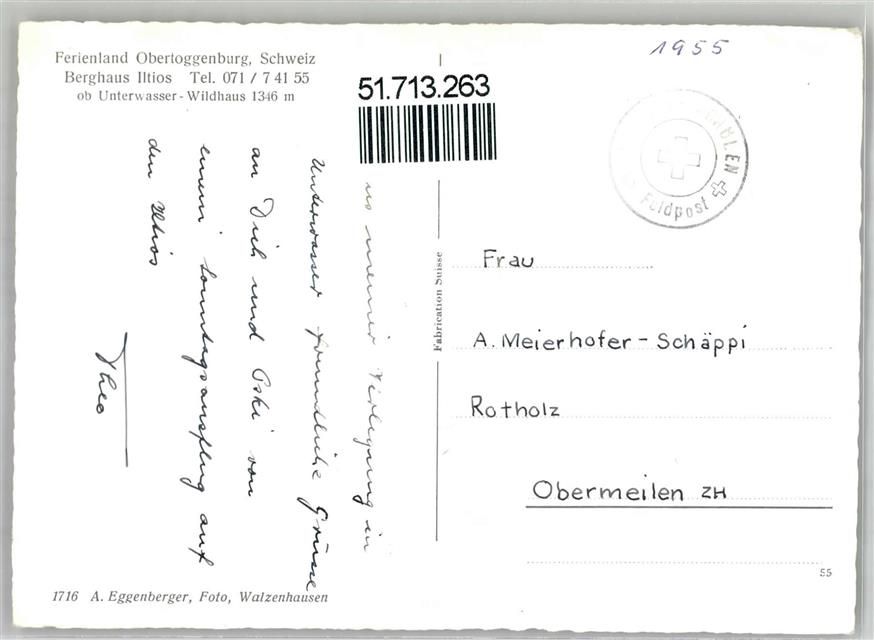 Ferienland Obertoggenburg, Schweiz
Berghaus Iltios Tel. 071 / 7 41 55
ob Unterwasser - Wildhaus 1346 m
51.713.263
1955
Feldpost
meiner Verlegung in
Unterwasser freundliche Grüsse
an Dich und Oski von
einem Sonntagsausflug auf
den Iltios
Theo
Fabrication Suisse
Frau
A. Meierhofer - Schäppi
Rotholz
Obermeilen ZH
55
1716 A. Eggenberger, Foto, Walzenhausen